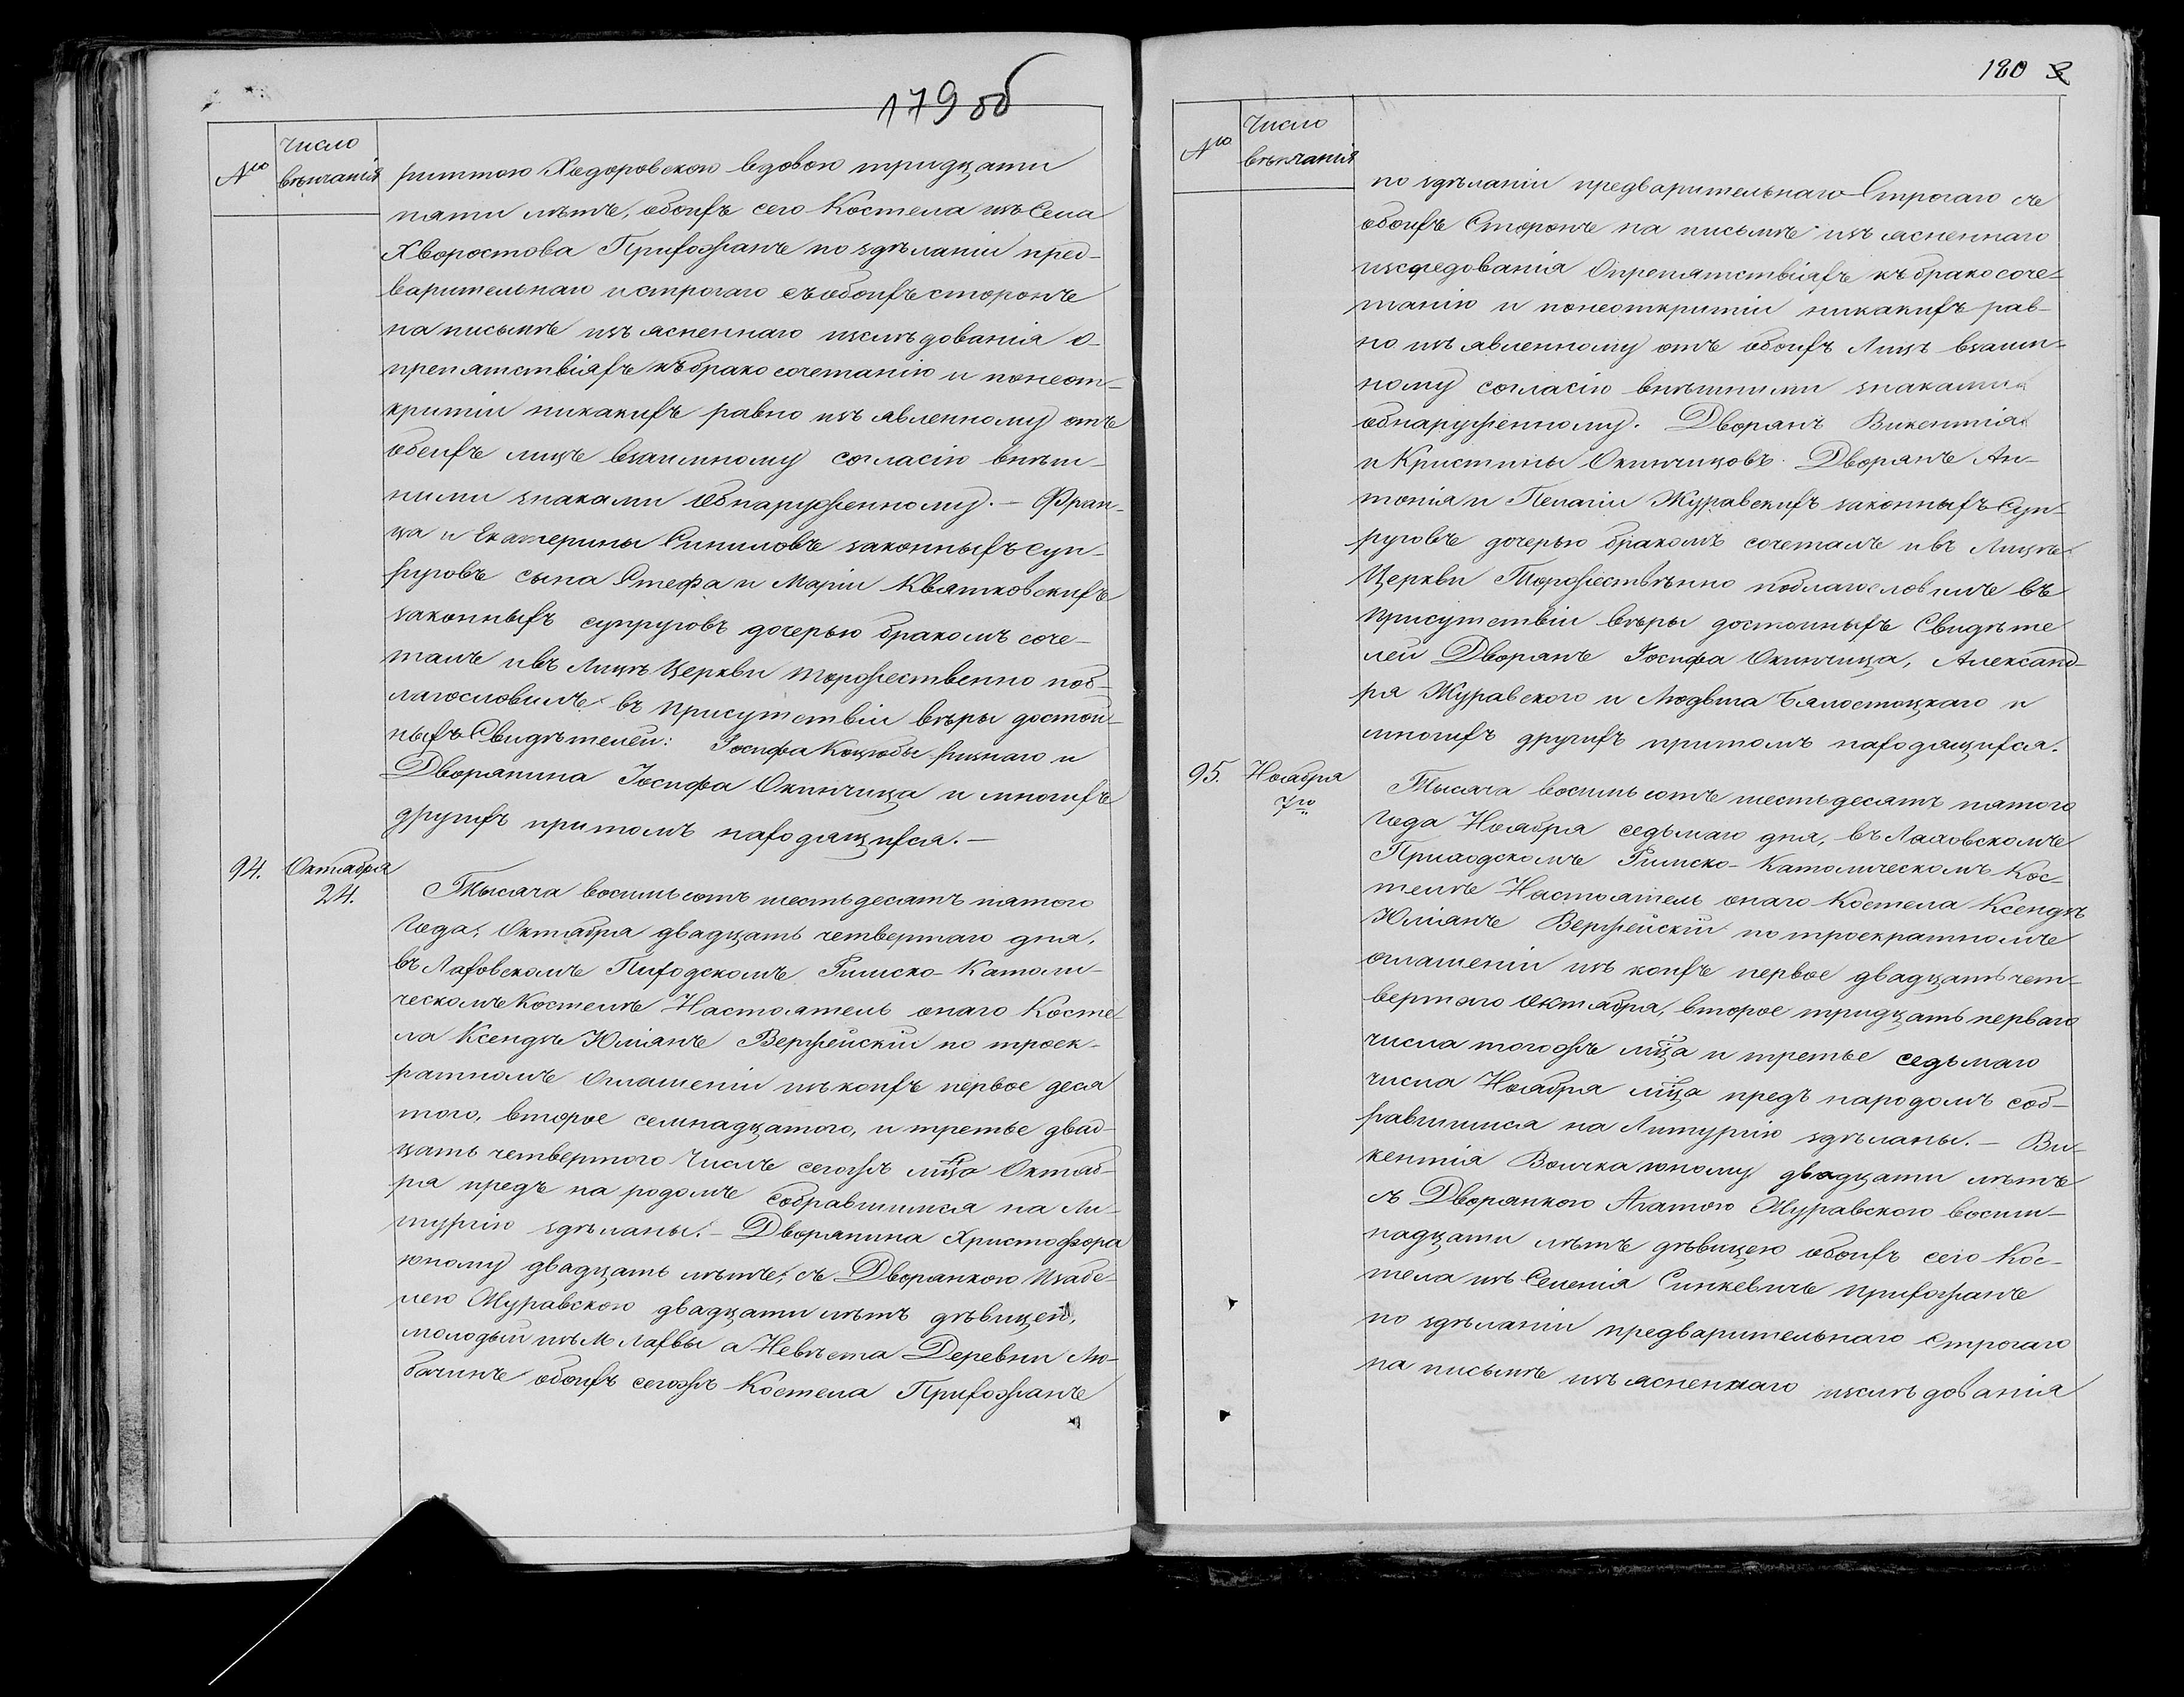 179 об
№
Число
вѣнчанія
риттою Ходоровскою вдовою тридцати
пяти лѣтъ, обоихъ сего Костела изъ Села
Хворостова Прихожанъ по здѣланіи пред-
варительнаго и строгаго съ обоихъ сторонъ
на письмѣ изъясненнаго изслѣдованія о
препятствіяхъ къ брако сочетанію и по неот-
критіи никакихъ равно изъявленному отъ
обеихъ лицъ взаимному согласію внѣш-
ними знаками обнаруженному. — Фран-
ца и Екатерины Синиловъ законныхъ Суп-
руговъ сына Стефа и Маріи Квятковскихъ
законныхъ супруговъ дочерью бракомъ соче-
талъ и въ Лицѣ Церкви торожественно поб-
лагословилъ въ присутствіи вѣры достой-
ныхъ Свидѣтелей: Іосифа Коцюбы ризнаго и
Дворянина Іосифа Окинчица и многихъ
другихъ притомъ находящихся. —
94.
Октабря
24.
Тысяча восимь сотъ шестьдесятъ пятого
Года, Октабря двадцать четвертаго дня,
въ Лаховскомъ Пиходскомъ Римско-Католи-
ческомъ Костелѣ Настоятель онаго Косте-
ла Ксендзъ Юліанъ Вержейскій по троек-
ратномъ Оглашеніи изъ коихъ первое деся
того, второе семнадцатого, и третье двад-
цать четвертого Числъ сегожъ мца Октаб-
ря предъ на родомъ собравшимся на Ли-
тургію здѣланы. — Дворянина Христофора
юному двадцать лѣтъ, съ Дворянкою Изабе-
лею Журавскою двадцати лѣтъ дѣвицей,
молодый изъ М Лахвы а Невѣста Деревни Лю-
бачинъ обоихъ сегожъ Костела Прихожанъ
180
№
Число
вѣнчанія
по здѣланіи предварительнаго Строгаго съ
обоихъ Сторонъ на письмѣ изъясненнаго
изсредованія Опрепятствіяхъ къ брако соче-
танію и понеоткритіи никакихъ рав-
но изъявленному отъ обоихъ Лицъ взаим-
ному согласію внѣшними знаками
обнаруженному. Дворянъ Викентія
и Кристины Окинчицовъ Дворянъ Ан-
тонія и Пелагіи Журавскихъ законныхъ Суп-
руговъ дочерью бракомъ сочеталъ и въ Лицѣ
Церкви Торожествѣнно поблагословилъ въ
присутствіи вѣры достоиныхъ Свидѣте
лей Дворянъ Іосифа Окинчица, Александ-
ра Журавского и Людвига Бялостоцкаго и
многихъ другихъ притомъ находящихся.
95.
Ноабря
7го
Тысяча восимь сотъ шестьдесятъ пятого
Года Ноабря седьмаго дня, въ Лаховскомъ
Приходскомъ Римско-Католическомъ Кос-
телѣ Настоятель онаго Костела Ксендзъ
Юліанъ Вержейскій по троекратномъ
оглашеніи изъ коихъ первое двадцать чет-
вертого Октабря, второе тридцать перваго
числа тогожъ мца и третье седьмаго
числа Ноабря мца предъ народомъ соб-
равшимся на Литургію здѣланы. — Ви-
кентія Волчка юному двадцати лѣтъ
съ Дворянкою Агатою Журавскою восим-
надцати лѣтъ дѣвицею обоихъ сего Кос-
тела изъ Селенія Синкевичъ прихожанъ
по здѣланіи предварительнаго Строгаго
на письмѣ изъясненнаго изслѣдованія